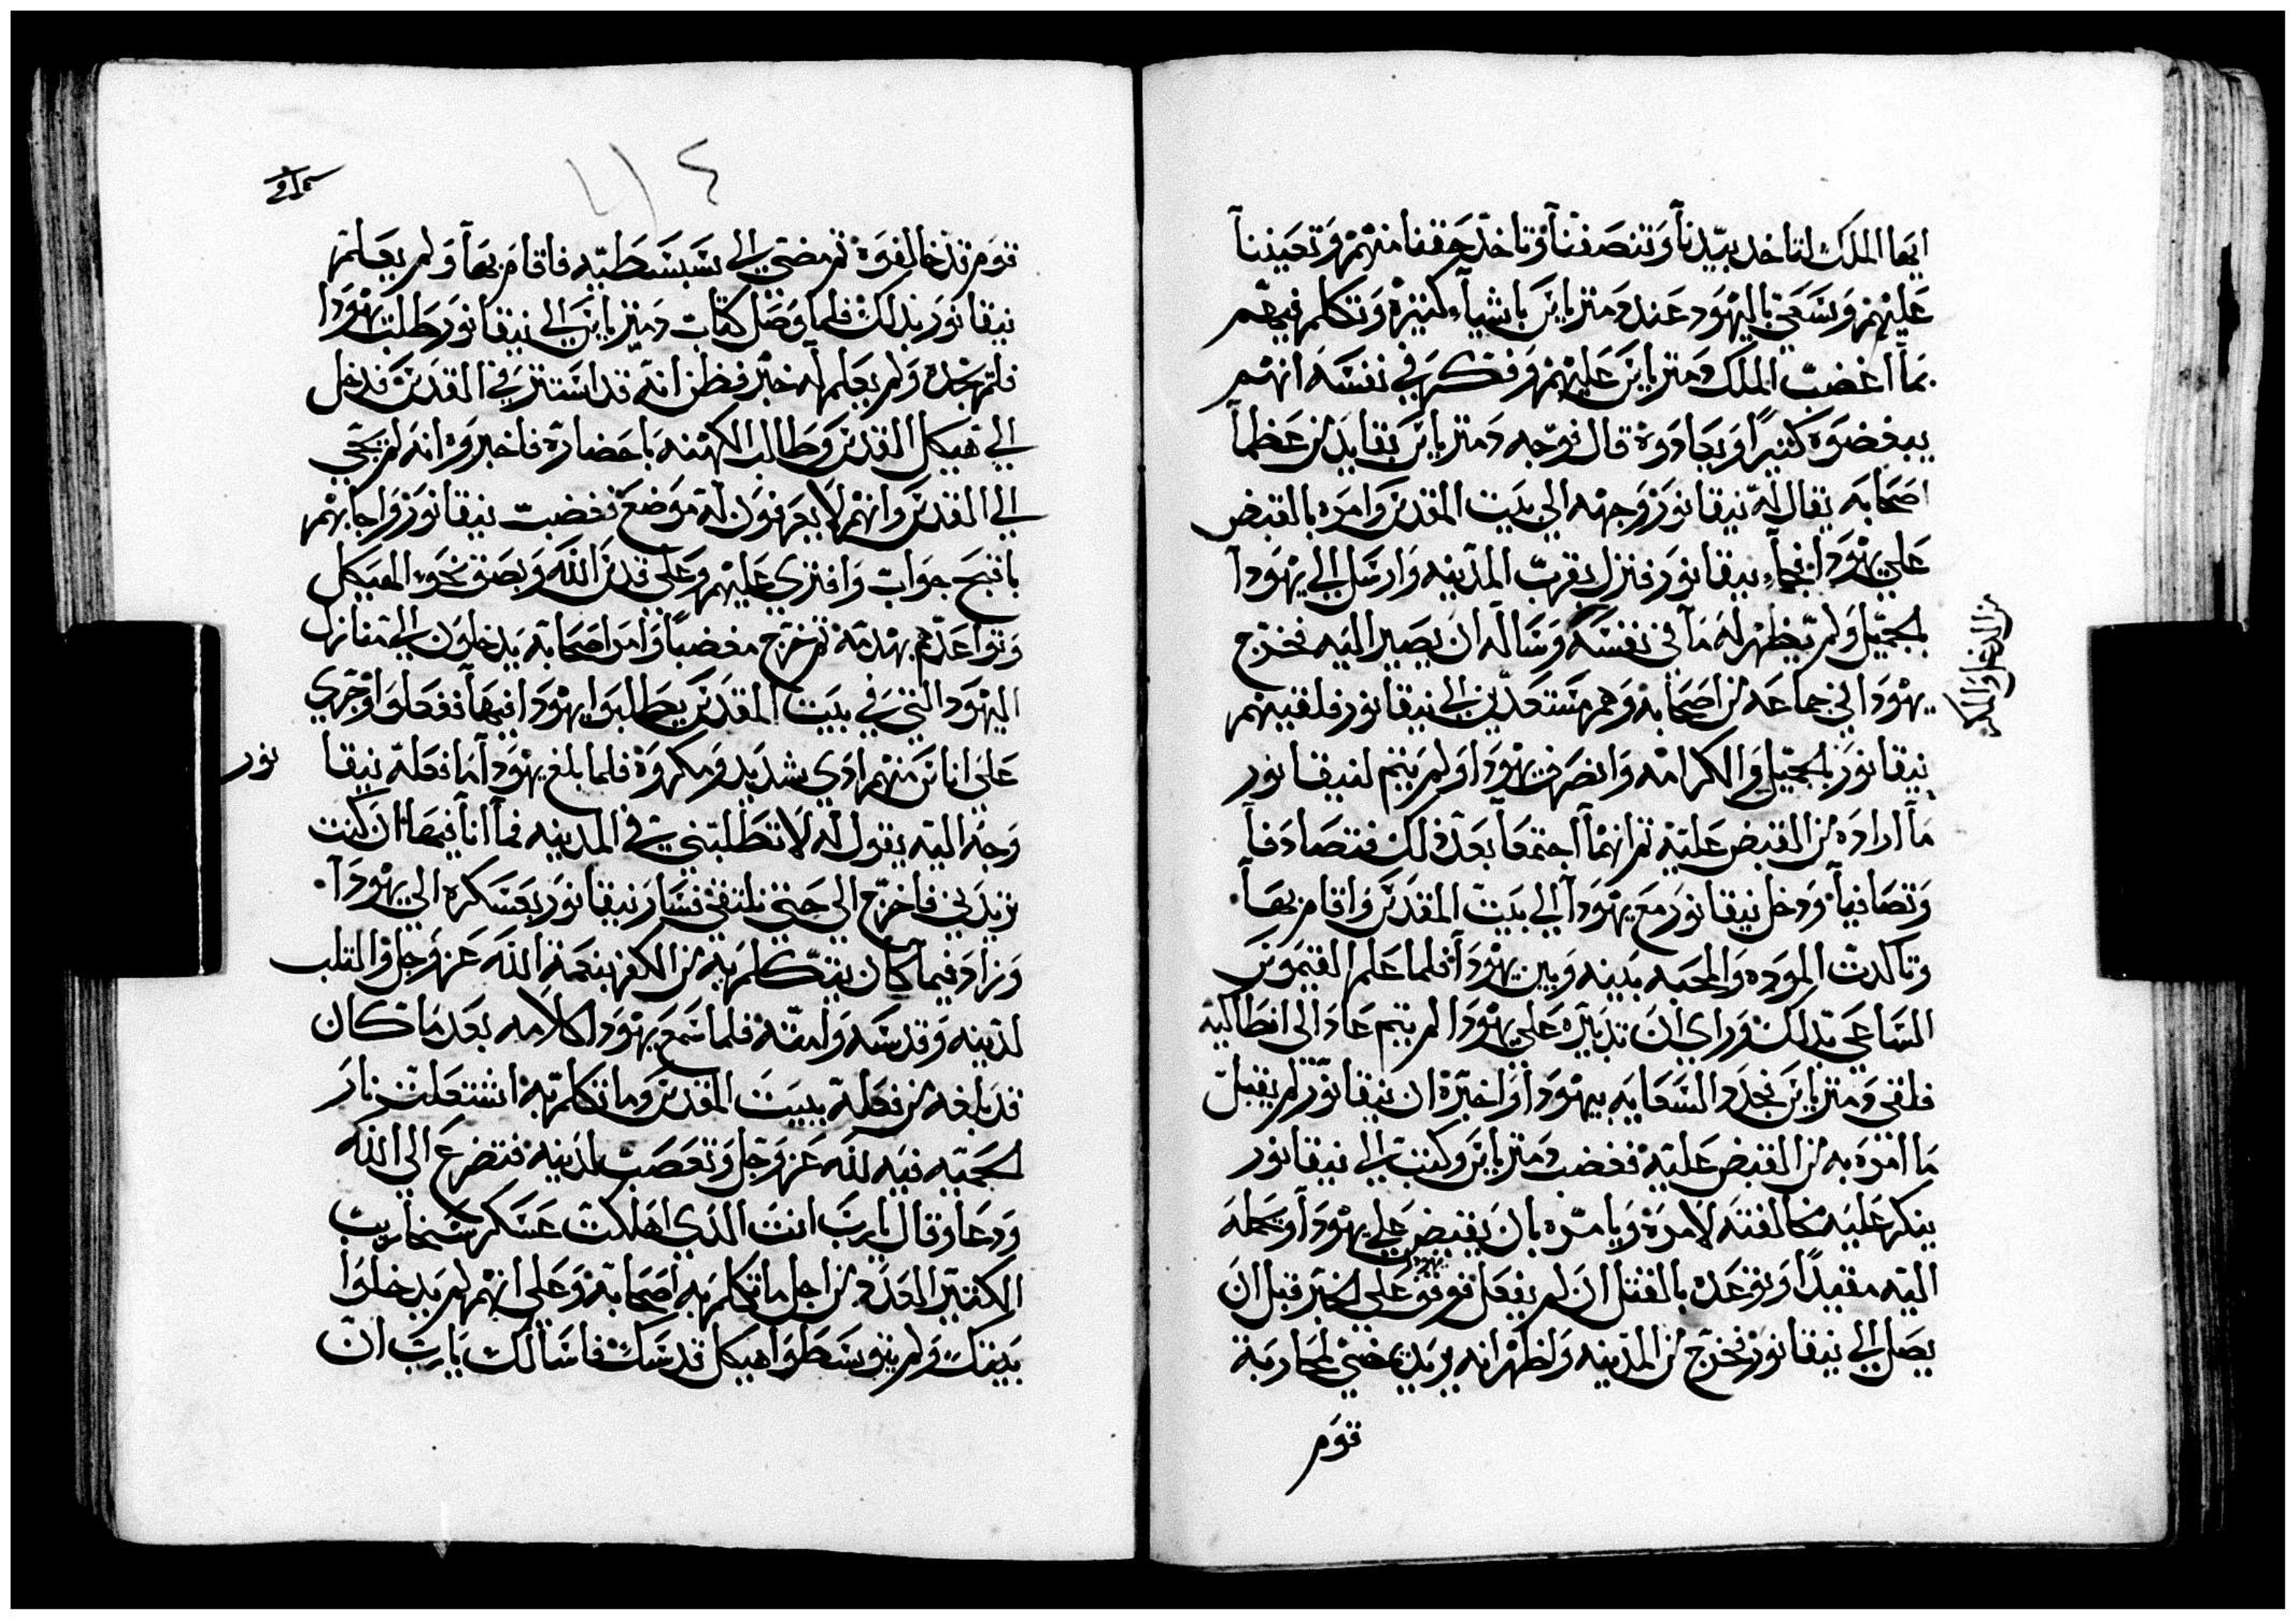 ايها الملك لتاخد بيدنا وتنصفنا وتاخد حقنا منهم وتعيننا
عليهم وسعي باليهود عند دمتريايس باشيآء كتيره وتكلم فيهم
بما اغضب الملك دمتريايس عليهم وفكره في نفسه انهم
يبغضوه كتيرًا ويعادوه قال فوجه دمتريايس بقايد من عظما
اصحابه يقال له نيقانور وجهه الي بيت المقدس وامره بالقبض
علي يهودا فجاء نيقانور فنزل بقرب المدينه وارسل الي يهودا
بالجميل ولم يظهر له ما في نفسه وساله ان يصير اليه فخرج
يهودا في جماعه من اصحابه وهم مستعدين الي نيقانور فلقيهم
نيقانور بالجميل والكرامه وانصرف يهودا ولم يتم لنيقانور
ما اراده من القبض عليه تم انهما اجتمعا بعد دلك فتصادقا
وتصافيا ودخل نيقانور مع يهودا الي بيت المقدس واقام بها
وتاكدت الموده والمحبه بينه وبين يهودا فلما علم القيموس
الساعي بدلك وراي ان تدبيره علي يهودا لم يتم عاد الى انطاكيه
فلقي دمتريايس فجدد السعايه بيهودا واخبره ان نيقانور لم يقبل
ما امره به من القبض عليه فغضب دمتريايس وكتب الي نيقانور
ينكر عليه مخالفته لامره ويامره بان يقبض علي يهودا ويحمله
اليه مقيدًا وتوعده بالقتل ان لم يفعل فوقف يهودا علي الخبر قبل ان
يصل الي نيقانور فخرج من المدينه واظهر انه يريد يمضي لمحاربة
قوم
من الدغل والمكر
١١٤
قوم قد خالفوه تم مضي الي سبسطيه فاقام بها ولم يعلم
نيقانور بدلك فلما وصل كتاب دمتريايس الي نيقانور طلب يهودا
فلم يجده ولم يعلم له خبر فظن انه قد استتر في القدس فدخل
الي هيكل القدس وطالب الكهنه باحضاره فاخبروه انه لم يجي
الي القدس وانهم لا يعرفون له موضع فغضب نيقانور واجابهم
باقبح جواب وافتري عليهم وعلى قدس الله وبصق نحو الهيكل
وتواعدهم بهدمه تم خرج مغضبًا وامر اصحابه يدخلون الي منازل
اليهود التي في بيت المقدس يطلبوا يهودا فيها ففعلوا وجري
علي اناس منهم ادي شديد ومكروه فلما بلغ يهودا ما فعله نيقانور
وجه اليه يقول له لا تطلبني في المدينه فما انا فيها ان كنت
تريدني فاخرج الي حتي نلتقي فسار نيقانور بعسكره الي يهودا
وزاد فيما كان يتكلم به من الكفر بنعمة الله عز وجل والتلب
لدينه وقدسه وامته فلما سمع يهودا كلامه بعد ما كان
قد بلغه من فعله ببيت المقدس وما تكلم به اشتعلت نار
الحميه فيه لله عز وجل وتعصب لدينه فتضرع الي الله
ودعا وقال يارب انت الدي اهلكت عسكر سنحاريب
الكتير العدد من اجل ما تكلم به اصحابه وعلي انهم لم يدخلوا
بيتك ولم يتوسطوا هيكل قدسك فاسالك يارب ان